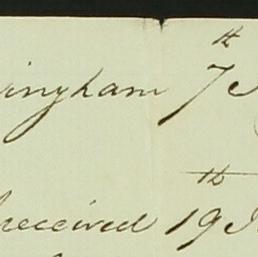 ingham 7th
received 19th